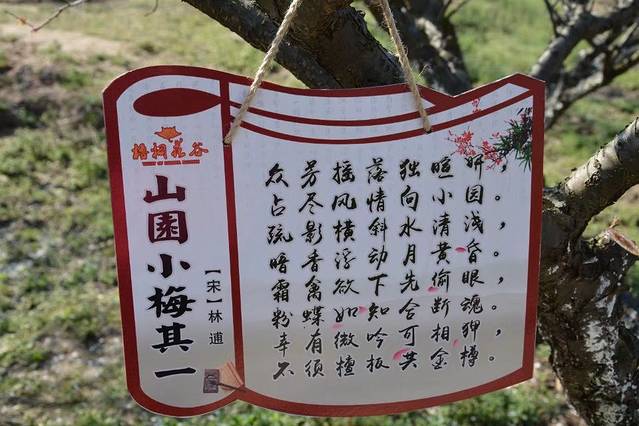 梧桐花谷
山園小梅其一
【宋】林逋
众芳摇落独暄妍，
占尽风情向小园。
疏影横斜水清浅，
暗香浮动月黄昏。
霜禽欲下先偷眼，
粉蝶如知合断魂。
幸有微吟可相狎，
不须檀板共金樽。